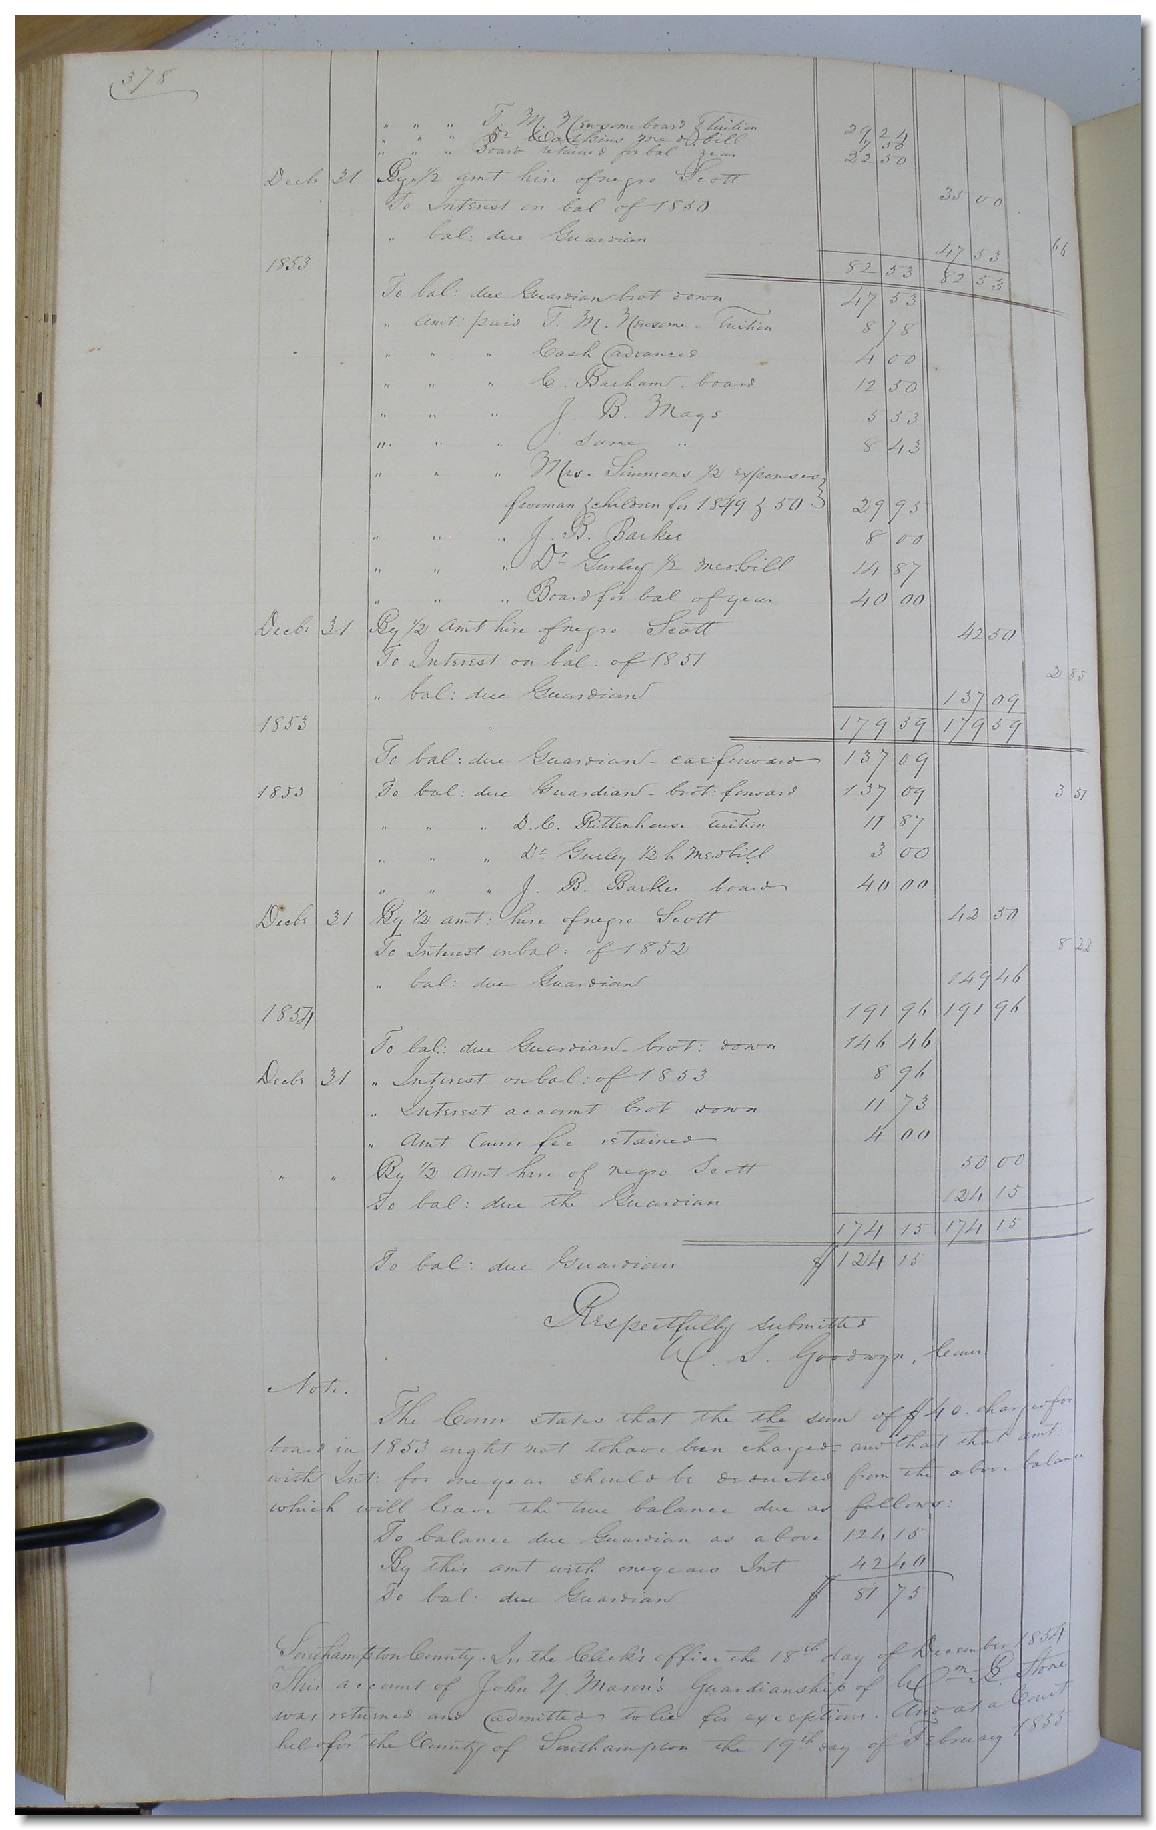 378
" " " T. M. Newsome board & Tuition 29 24
" " " Dr Watkins med bill 7 50
" " " Board retained for bal year 22 50
Decbr 31 By 1/2 amt hire of negro Scott 35 00
To Interest on bal of 1850 66
" bal: due Guardian 47 53
1853 82 53 82 53
To bal: due Guardian brot down 47 53
" amt: paid T. M. Newsome Tuition 8 78
" " " Cash advanced 4 00
" " " C. Barham board 12 50
" " " J. B. Mays 5 53
" " " J. same " 8 43
" " " Mrs. Simmons 1/2 expenses
for woman & children for 1849 & 50 29 95
" " " J. B. Barker 8 00
" " " Dr Gurley 1/2 med bill 14 87
" " " Board for bal of year 40 00
Decbr 31 By 1/2 amt hire of negro Scott 42 50
To Interest on bal: of 1851 2 85
" bal: due Guardian 137 09
1853 179 59 179 59
To bal: due Guardian car forward 137 09
1853 To bal: due Guardian brot forward 137 09 3 51
" " " D. C. Rittenhouse Tuition 11 87
" " " Dr Gurley 1/2 med bill 3 00
" " " J. B. Barker board 40 00
Decbr 31 By 1/2 amt: hire of negro Scott 42 50
To Interest on bal: of 1852 8 22
" bal: due Guardian 149 46
1854 191 96 191 96
To bal: due Guardian brot: down 146 46
Decbr 31 " Interest on bal: of 1853 8 96
" Interest account brot down 11 73
" amt Comr fee retained 4 00
" " By 1/2 amt hire of negro Scott 50 00
To bal: due the Guardian 124 15
174 15 174 15
To bal: due Guardian $ 124 15
Respectfully submitted
W. S. Goodwyn, Comr
Note.
The Comr states that the the sum of $40. charged for
board in 1853 ought not to have been charged and that that amt
with Int: for one year should be deducted from the above balance
which will leave the true balance due as follows:
To balance due Guardian as above 124 15
By this amt with one years Int 42 40
To bal: due Guardian $ 81 75
Southampton County. In the Clerk's office the 18th day of December 1854
This account of John Y. Mason's Guardianship of Wm B. Stone
was returned and admitted to lie for exceptions. And at a Court
held for the County of Southampton the 19th day of February 1855